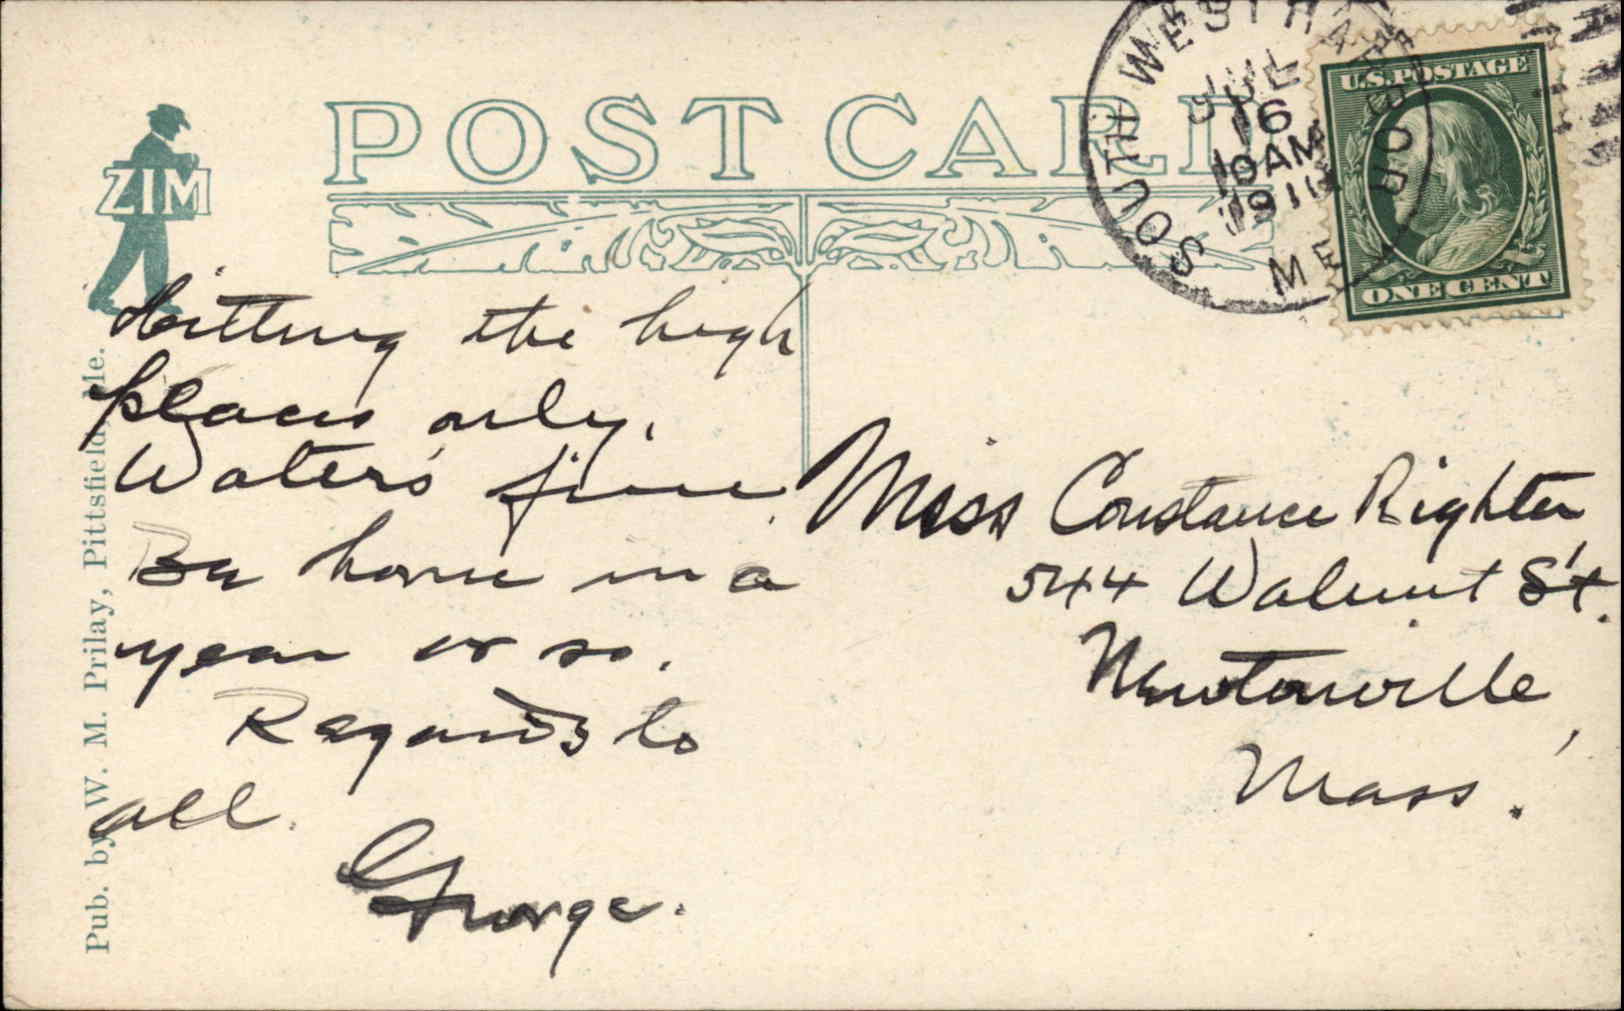 POST CARD
ZIM
SOUTH WEST HARBOR
JUL
16
10AM
1911
ME
U.S. POSTAGE
ONE CENT
Hitting the high
places only.
Water's fine.
Be home in a
year or so.
Regards to
all.
George.
Miss Constance Righter
544 Walnut St.
Newtonville,
Mass.
Pub. by W. M. Prilay, Pittsfield, Me.